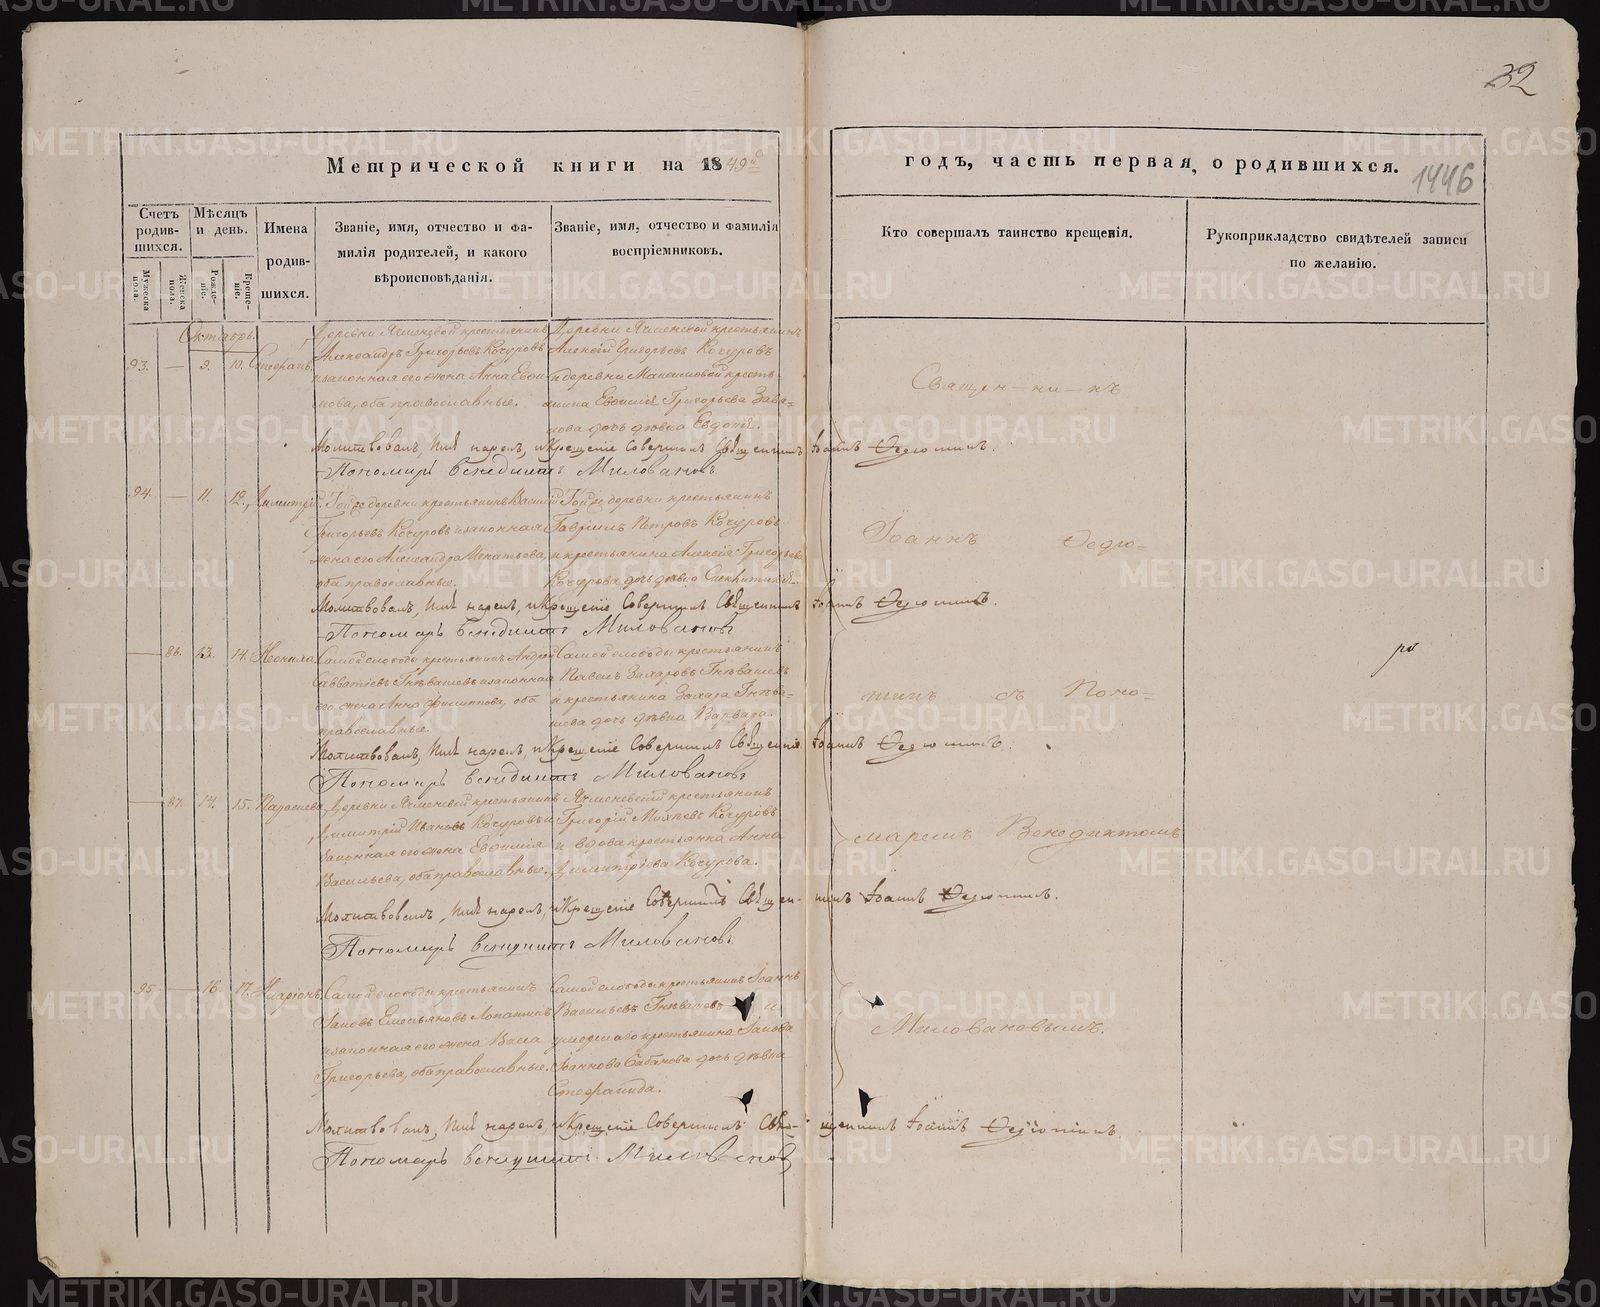 32
Метрической книги на 1849й
годъ, часть первая, о родившихся.
1446
Счетъ родив-шихся.
Мужеска пола.
Женска пола.
Мѣсяцъ и день.
Рожде-ніе.
Креще-ніе.
Имена родив-шихся.
Званіе, имя, отчество и фа-
милія родителей, и какого
вѣроисповѣданія.
Званіе, имя, отчество и фамилія
воспріемниковъ.
Кто совершалъ таинство крещенія.
Рукоприкладство свидѣтелей записи
по желанію.
Октябрь.
93. — 9. 10. Стефанъ
Деревни Ячменевой крестьянинъ
Александръ Григорьевъ Кочуровъ
и законная его жена Анна Евѳи-
мова, оба православные.
Деревни Ячменевой крестьянинъ
Алексій Григорьевъ Кочуровъ
и деревни Максимовой кресть-
янина Евѳимія Григорьева
дочь дѣвка Евдокія.
Священ-ни-къ
Молитвовалъ, имя нарекъ, и Крещеніе Совершилъ Священникъ Іоаннъ Ѳедюшинъ.
Пономарь Бенедиктъ Миловановъ
94. — 11. 12. Димитрій
Той же деревни крестьянинъ Василій
Григорьевъ Кочуровъ и законная
жена его Александра Игнатьева,
оба православные.
Той же деревни крестьянинъ
Гавріилъ Петровъ Кочуровъ
и крестьянина Алексія Григорьева
Кочурова дочь дѣвка
Іоаннъ Ѳедю-
Молитвовалъ, имя нарекъ, и Крещеніе Совершилъ Священникъ Іоаннъ Ѳедюшинъ.
Пономарь Бенедиктъ Миловановъ
— 86. 13. 14. Неонила
Самой слободы крестьянинъ Андрей
Савватіевъ Гнѣвашевъ и законная
его жена Анна Филиппова, оба
православные.
Самой слободы крестьянинъ
Павелъ Захаровъ Гнѣвашевъ
и крестьянина Захара Гнѣва-
шева дочь дѣвка Варвара.
шинъ съ Поно-
Молитвовалъ, имя нарекъ, и Крещеніе Совершилъ Священникъ Іоаннъ Ѳедюшинъ.
Пономарь Бенедиктъ Миловановъ
— 87. 14. 15. Параскева
Деревни Ячменевой крестьянинъ
Димитрій Ивановъ Кочуровъ и
законная его жена Евѳимія
Васильева, оба православные.
Ячменевской крестьянинъ
Григорій Кочуровъ
и вдова крестьянка Анна
Димитріева Кочурова.
маремъ Венедиктомъ
Молитвовалъ, имя нарекъ, и Крещеніе Совершилъ Священ-никъ Іоаннъ Ѳедюшинъ.
Пономарь Бенедиктъ Миловановъ
95 — 16. 17. Иларіонъ
Самой слободы крестьянинъ
Іаковъ Емельяновъ Лопаткинъ
и законная его жена Васса
Григорьева, оба православные.
Самой слободы крестьянинъ Іоаннъ
Васильевъ Гнѣвашевъ и
умершаго крестьянина Іакова
Іоаннова Бабанова дочь дѣвка
Стефанида.
Миловановымъ.
Молитвовалъ, имя нарекъ, и Крещеніе Совершилъ Свя-щенникъ Іоаннъ Ѳедюшинъ
Пономарь Бенедиктъ Миловановъ
METRIKI.GASO-URAL.RU